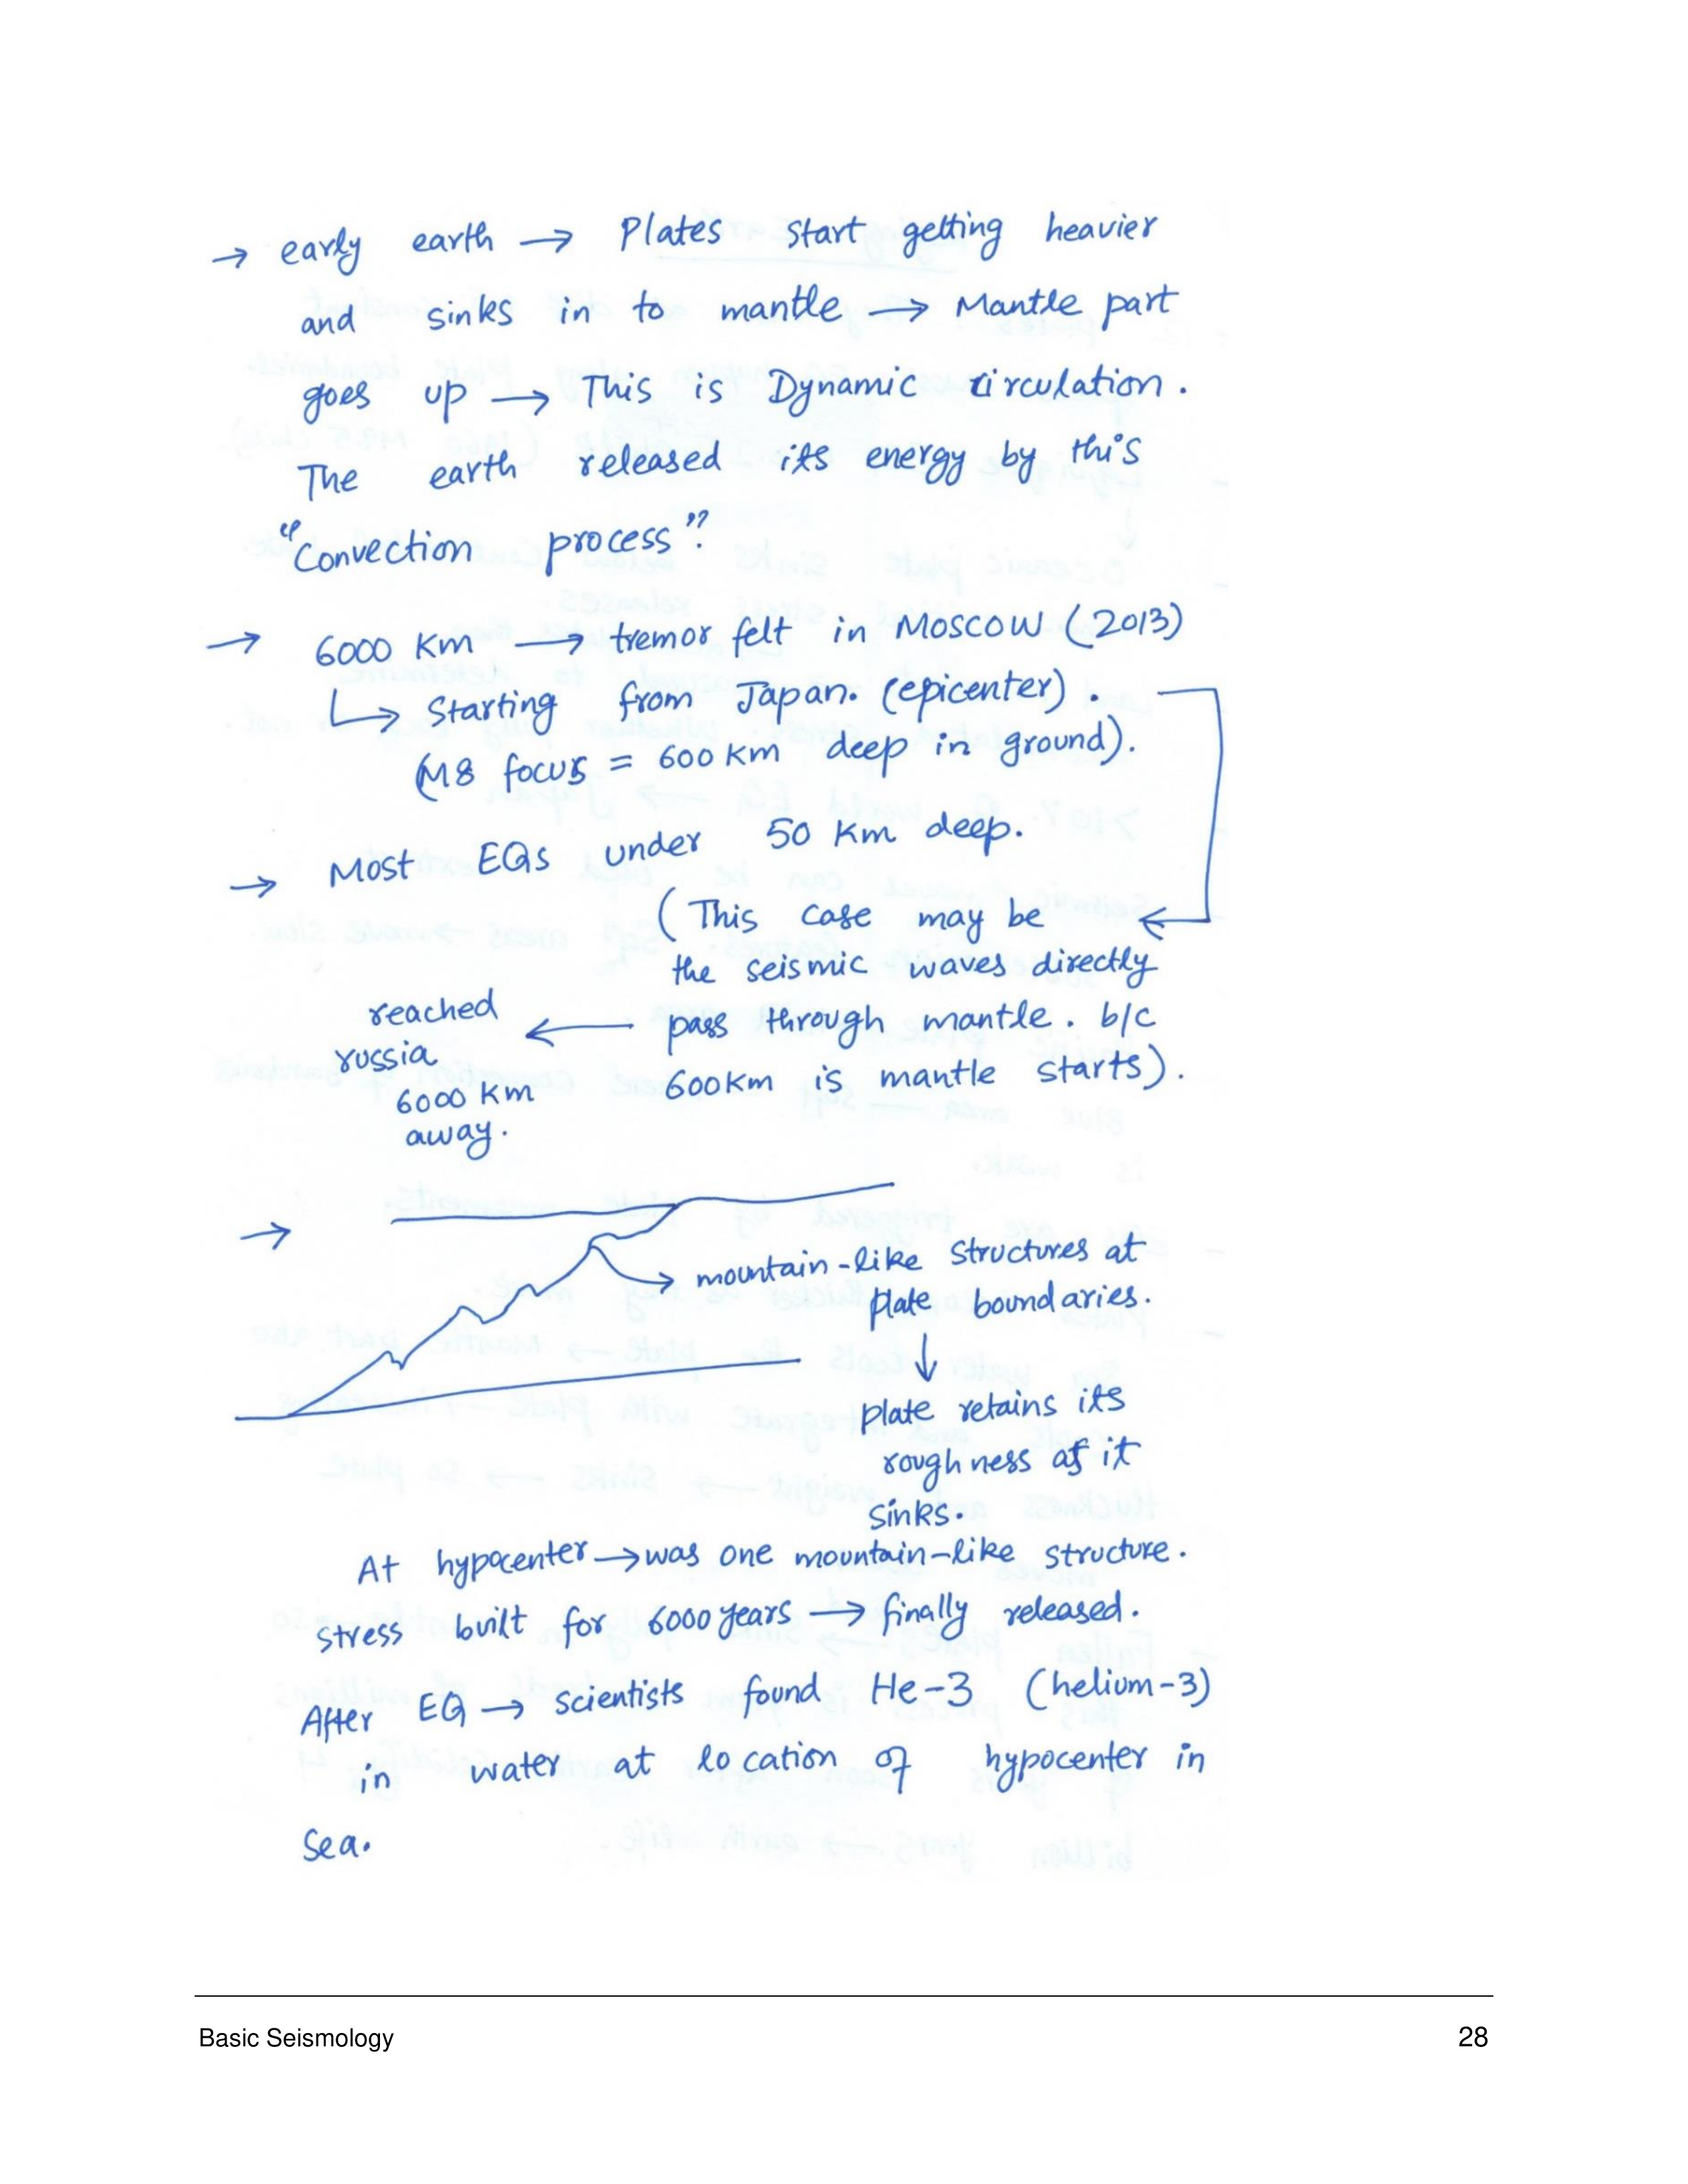 → early earth → Plates start getting heavier
and sinks in to mantle → Mantle part
goes up → This is Dynamic circulation.
The earth released its energy by this
"Convection process".
→ 6000 Km → tremor felt in MOSCOW (2013)
↳ Starting from Japan. (epicenter).
(M8 focus = 600 Km deep in ground).
→ Most EQs under 50 Km deep.
(This case may be
the seismic waves directly
pass through mantle. b/c
600Km is mantle starts).
← reached
russia
6000 Km
away.
→ mountain-like structures at
plate boundaries.
↓
plate retains its
roughness as it
sinks.
At hypocenter → was one mountain-like structure.
stress built for 6000 years → finally released.
After EQ → scientists found He-3 (helium-3)
in water at location of hypocenter in
sea.
Basic Seismology 28